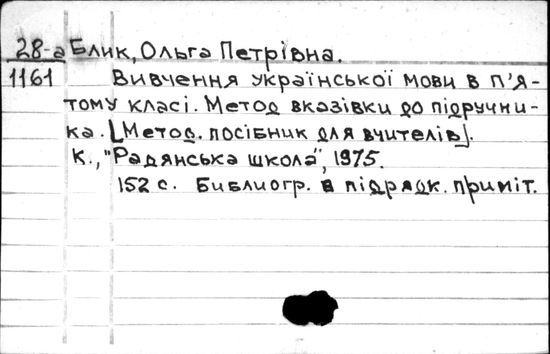 28-а Блик, Ольга Петрівна.
1161 Вивчення української мови в п'я-
тому класі. Метод вказівки до підручни-
ка. [Метод. посібник для вчителів].
К., "Радянська школа", 1975.
152 с. Библиогр. в підрядк. приміт.